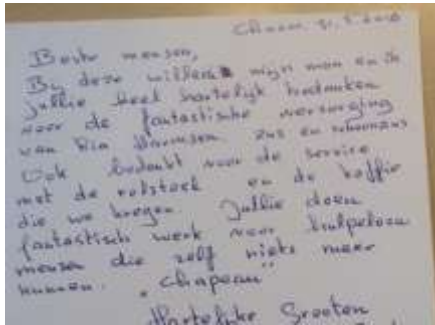 Chaam, 21.5.2018
Beste mensen,
Bij deze willen mijn man en ik
jullie heel hartelijk bedanken
voor de fantastische verzorging
van Ria Harmsen zus en schoonzus
Ook bedankt voor de service
met de rolstoel en de koffie
die we kregen. Jullie doen
fantastisch werk voor hulpeloze
mensen die zelf niets meer
kunnen. "Chapeau"
Hartelijke Groeten